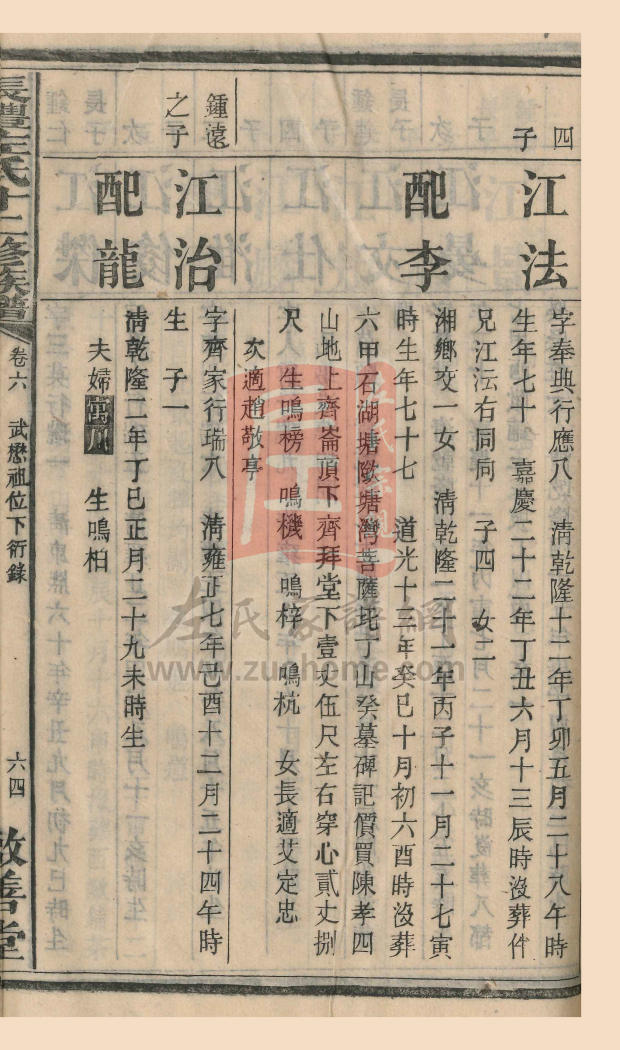 四
子
江法
字奉典行應八 清乾隆十二年丁卯五月二十八午時
生年七十 嘉慶二十二年丁丑六月十三辰時沒葬件
兄江沄右同同 子四 女二
配李
湘鄉交一女 清乾隆二十一年丙子十一月二十七寅
時生年七十七 道光十三年癸巳十月初六酉時沒葬
六甲石湖塘墩塘灣菩薩坨丁山癸墓碑記價買陳孝四
山地上齊崙頂下齊拜堂下壹丈伍尺左右穿心貳丈捌
尺 生鳴榜 鳴機 鳴梓 鳴杭 女長適艾定忠
次適趙敬亭
鍾遠
之子
江治
字齊家行瑞八 清雍正七年己酉十二月二十四午時
生 子一
配龍
清乾隆二年丁巳正月二十九未時生
夫婦 生鳴柏
長澧左氏十二修族譜
卷六 武懋祖位下衍錄
六四
敦善堂
左氏家譜網
www.zuojiahome.com